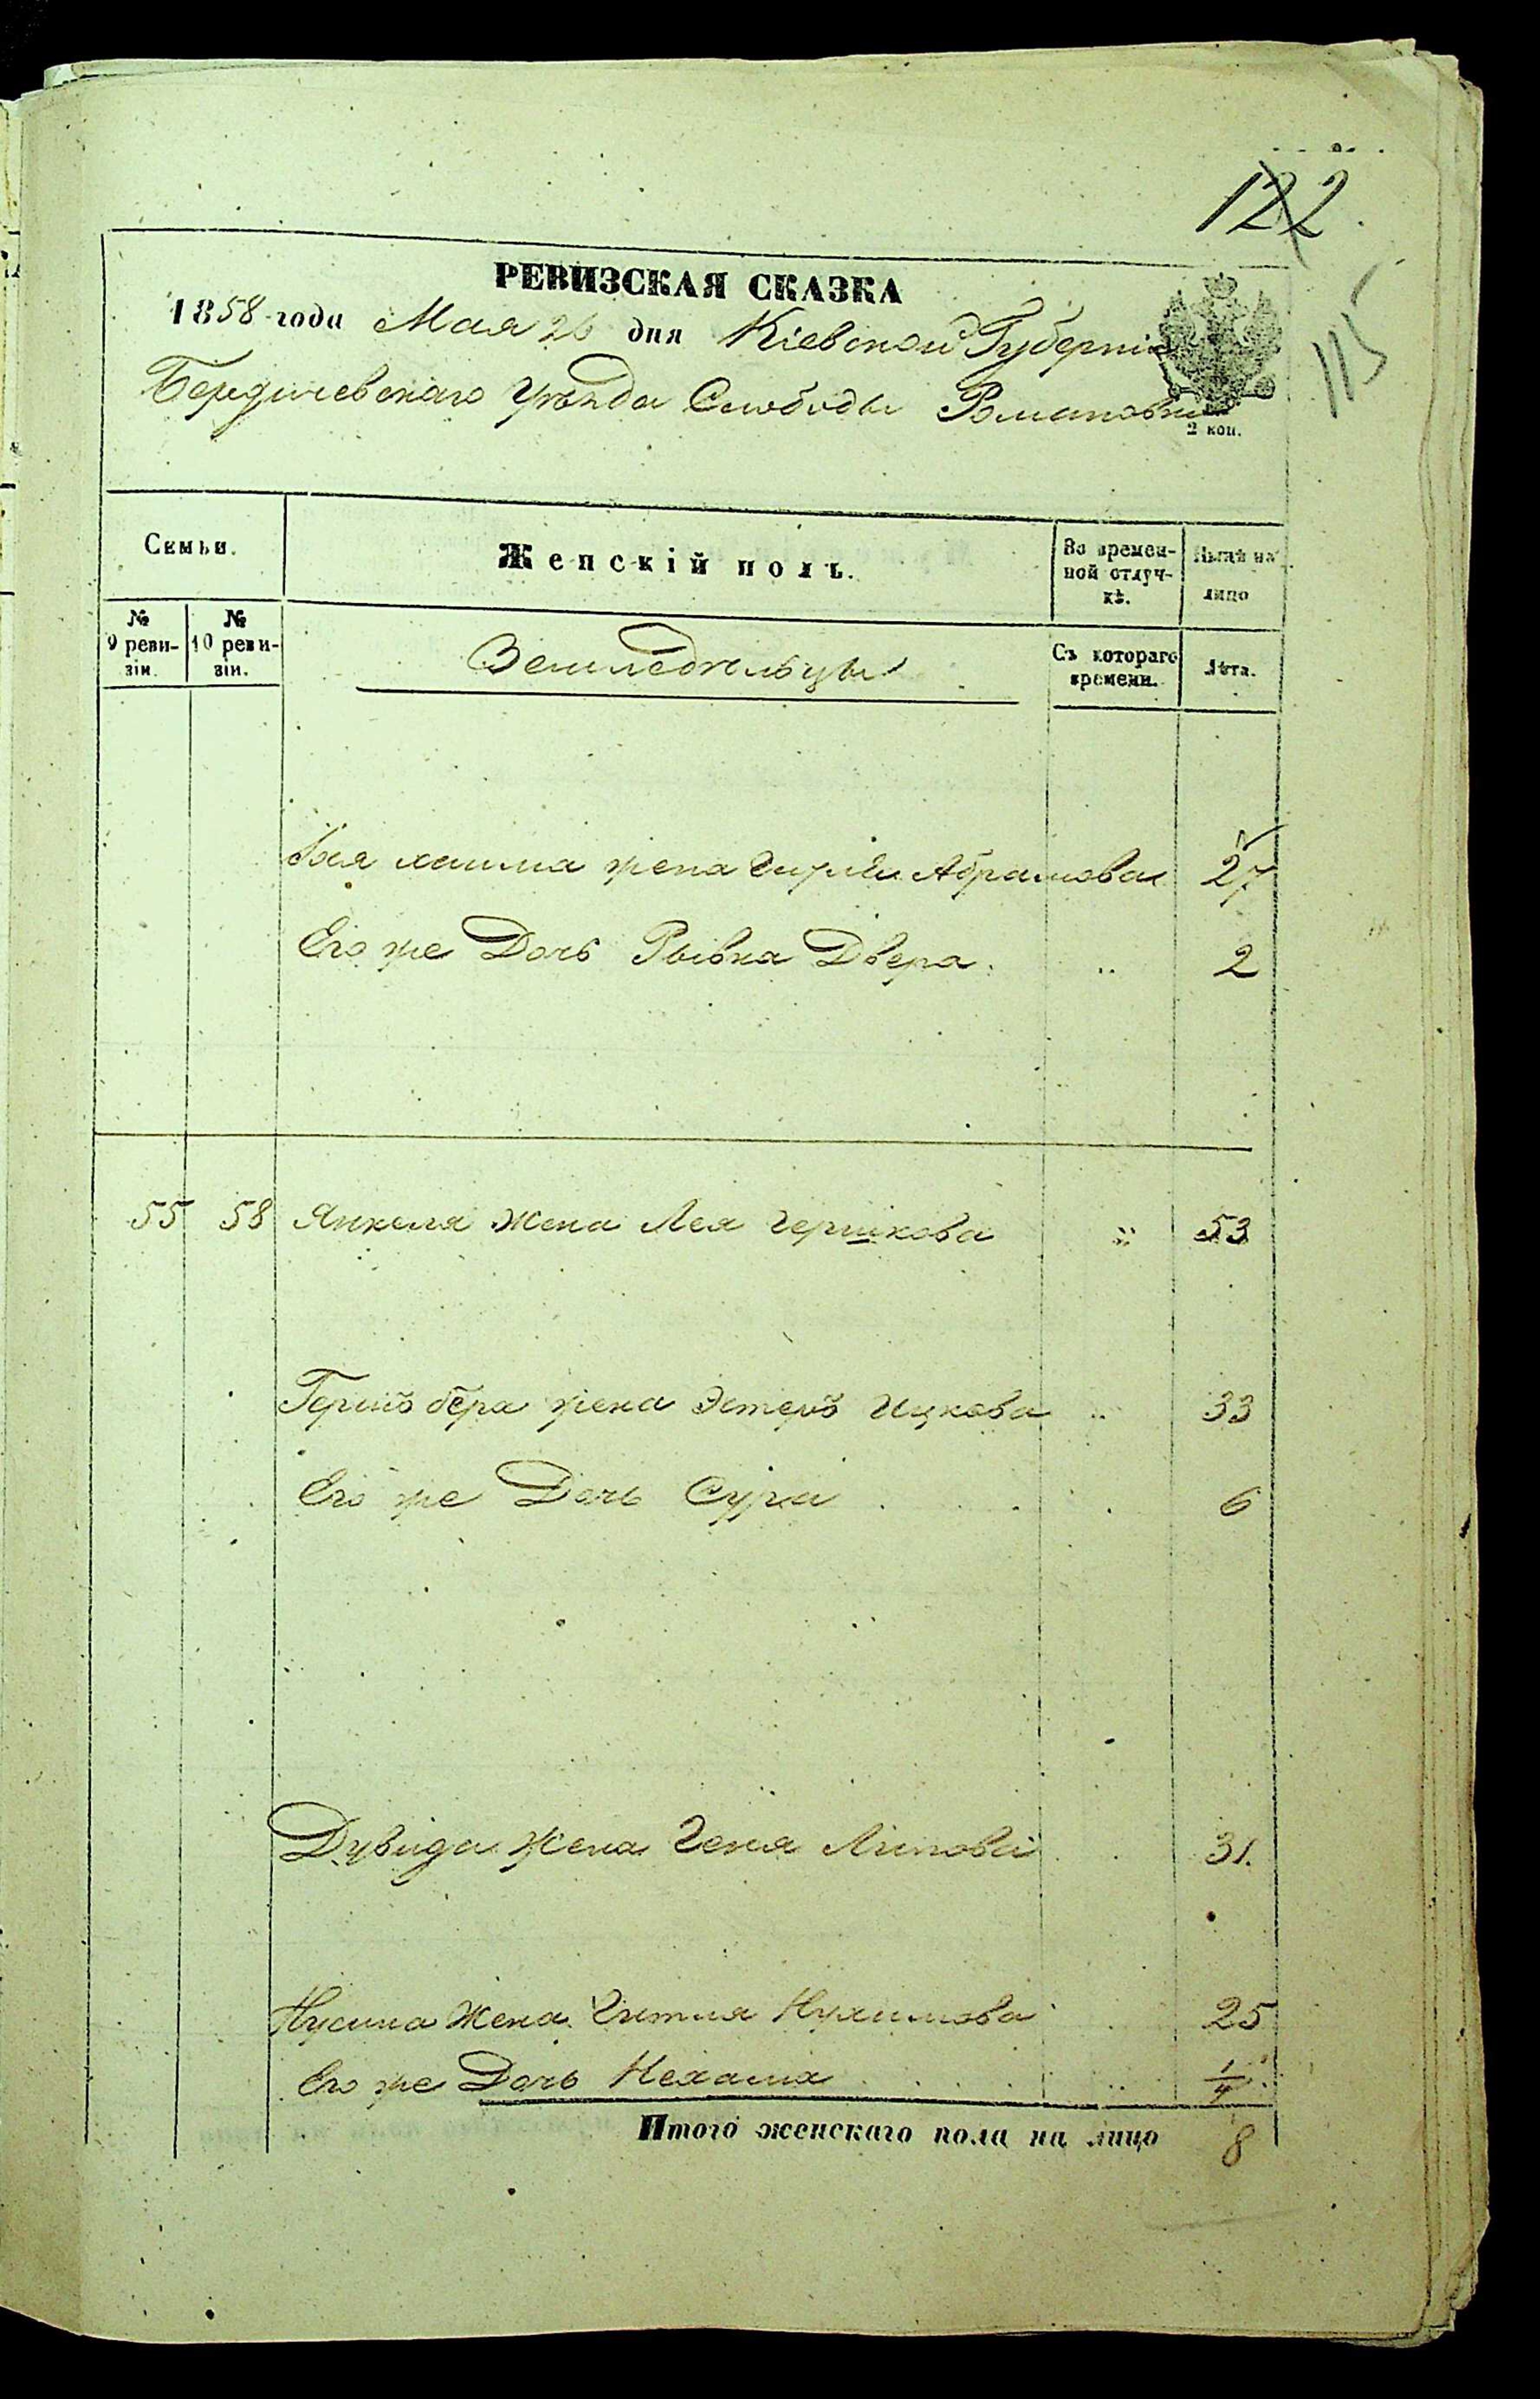 122
115
РЕВИЗСКАЯ СКАЗКА
1858 года Мая 26 дня Кіевской Губерніи
Бердичевскаго Уѣзда Слободы Романовки
2 коп.
Семьи.
Женскій полъ.
Во времен-
ной отлуч-
кѣ.
Нынѣ на
лицо
№
9 реви-
зіи.
№
10 реви-
зіи.
Земледѣльцы
Съ котораго
времени.
Лѣта.
жена Абрамова 27
Его же Дочь Рывка Двера 2
55 58 Янкеля Жена Лея Гершкова 53
Гершъ бера жена Эстеръ Ицкова 33
Его же Дочь Сура 6
Дувида Жена Геня Липова 31.
Нусина Жена Гитля Нухимова 25
Его же Дочь Нехама 1/4
Итого женскаго пола на лицо 8